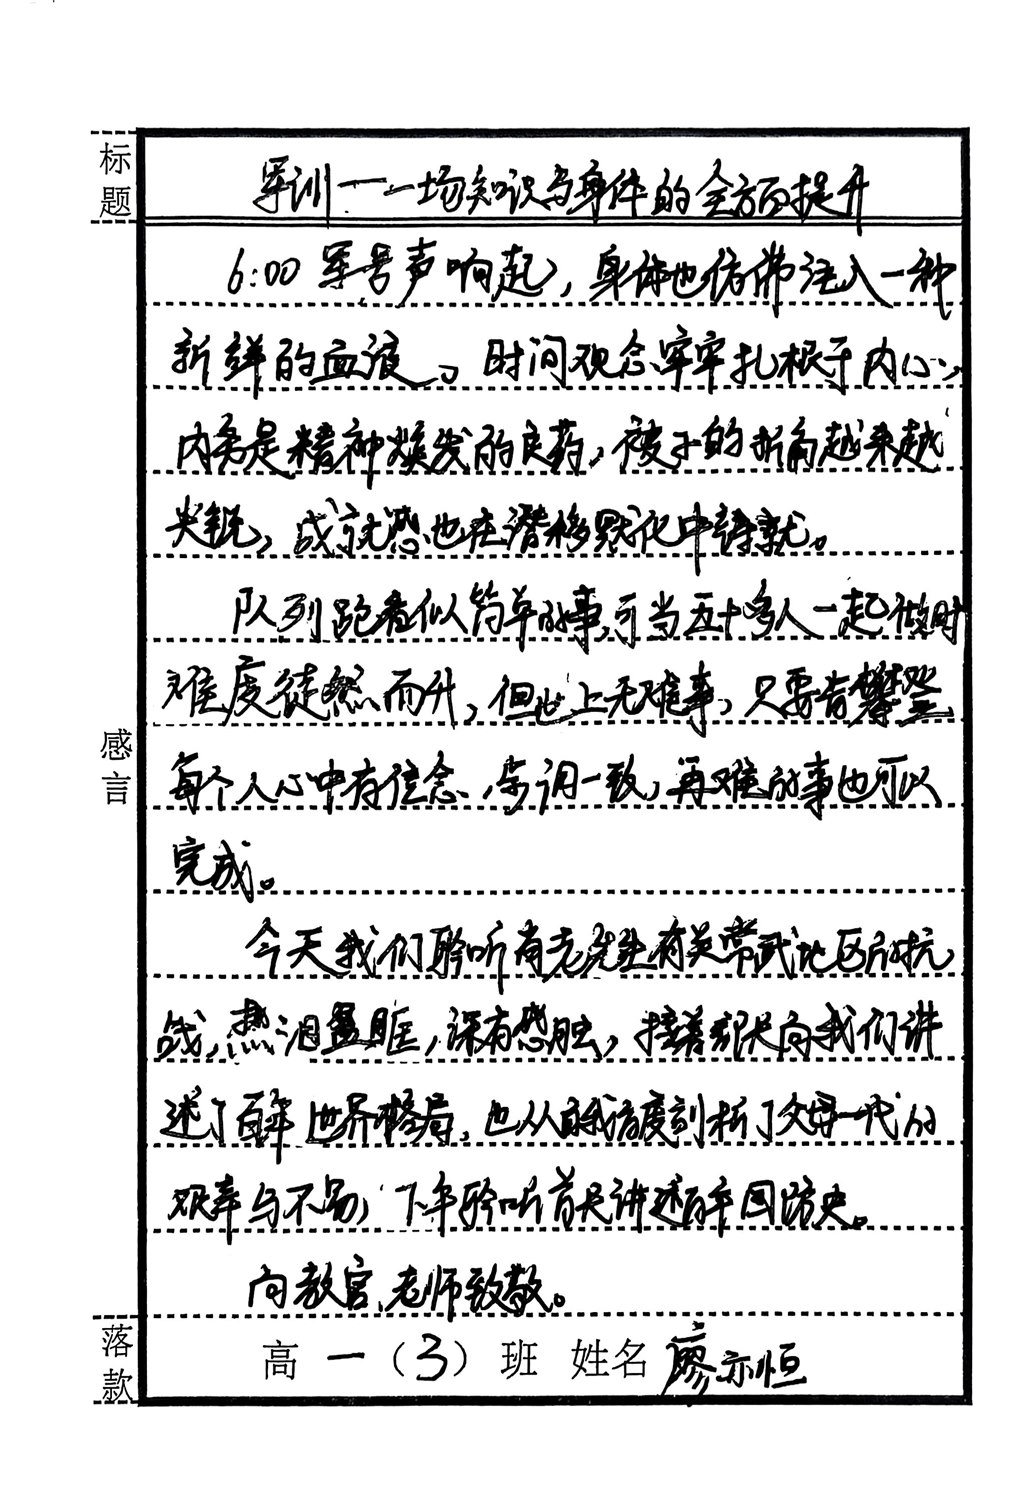 标题
军训——一场知识与身体的全方面提升
6:00军号声响起，身体也仿佛注入一种
新鲜的血液。时间观念牢牢扎根于内心，
内务是精神焕发的良药，被子的折角越来越
尖锐，成就感也在潜移默化中铸就。
队列跑看似简单的事，可当五十多人一起做时
难度徒然而升，但世上无难事，只要肯攀登
每个人心中有信念，步调一致，再难的事也可以
感言
完成。
今天我们聆听肖老先生有关常武地区的抗
战，热泪盈眶，深有感触，接着 向我们讲
述了百年世界格局，也从 角度剖析了父母一代的
艰辛与不易，下午聆听首长讲述百年国防史。
向教官、老师致敬。
落款
高一（3）班 姓名 廖亦恒